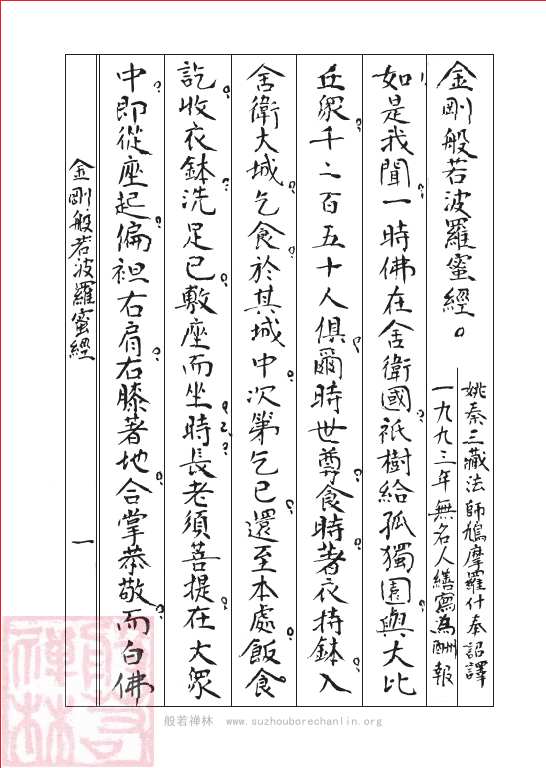 金剛般若波羅蜜經。
姚秦三藏法師鳩摩羅什奉詔譯
一九九三年無名人繕寫為酬報
如是我聞一時佛在舍衛國祇樹給孤獨園與大比
丘眾千二百五十人俱爾時世尊食時著衣持鉢入
舍衛大城乞食於其城中次第乞已還至本處飯食
訖收衣鉢洗足已敷座而坐時長老須菩提在大眾
中即從座起偏袒右肩右膝著地合掌恭敬而白佛
金剛般若波羅蜜經
一
般若禅林 www.suzhouborechanlin.org
般若禅林